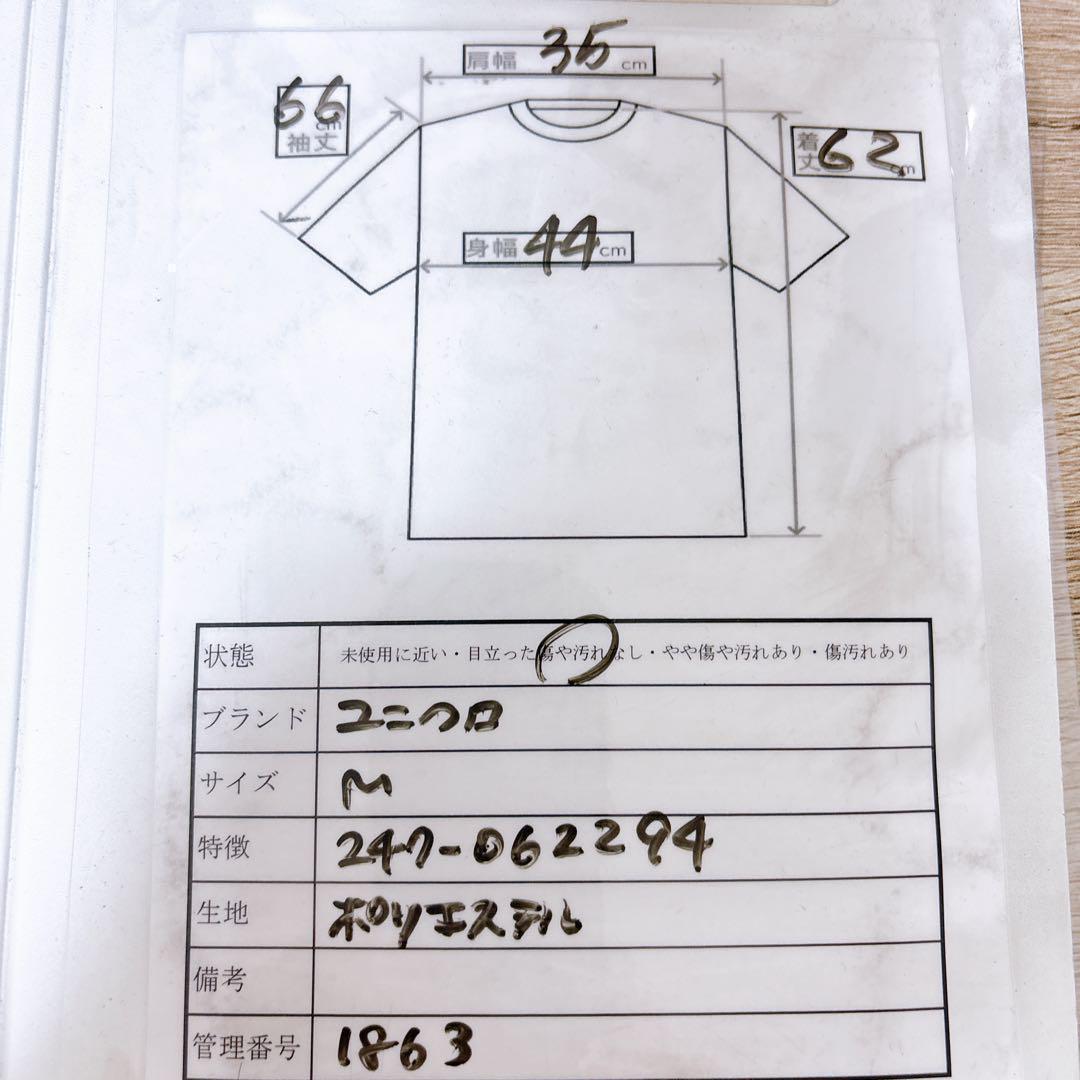 肩幅 35 cm
66 cm
袖丈
着丈 62 cm
身幅 44 cm
状態 未使用に近い・目立った傷や汚れなし・やや傷や汚れあり・傷汚れあり
ブランド ユニクロ
サイズ M
特徴 247-062294
生地 ポリエステル
備考
管理番号 1863